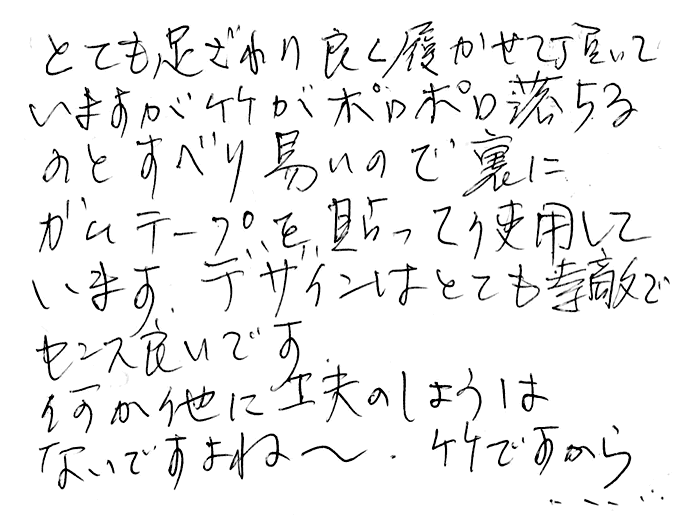 とても足ざわり良く履かせて頂いて
いますが竹がポロポロ落ちる
のとすべり易いので裏に
ガムテープを貼って使用して
います。デザインはとても素敵で
センス良いです
何か他に工夫のしようは
ないですよね〜.竹ですから
……